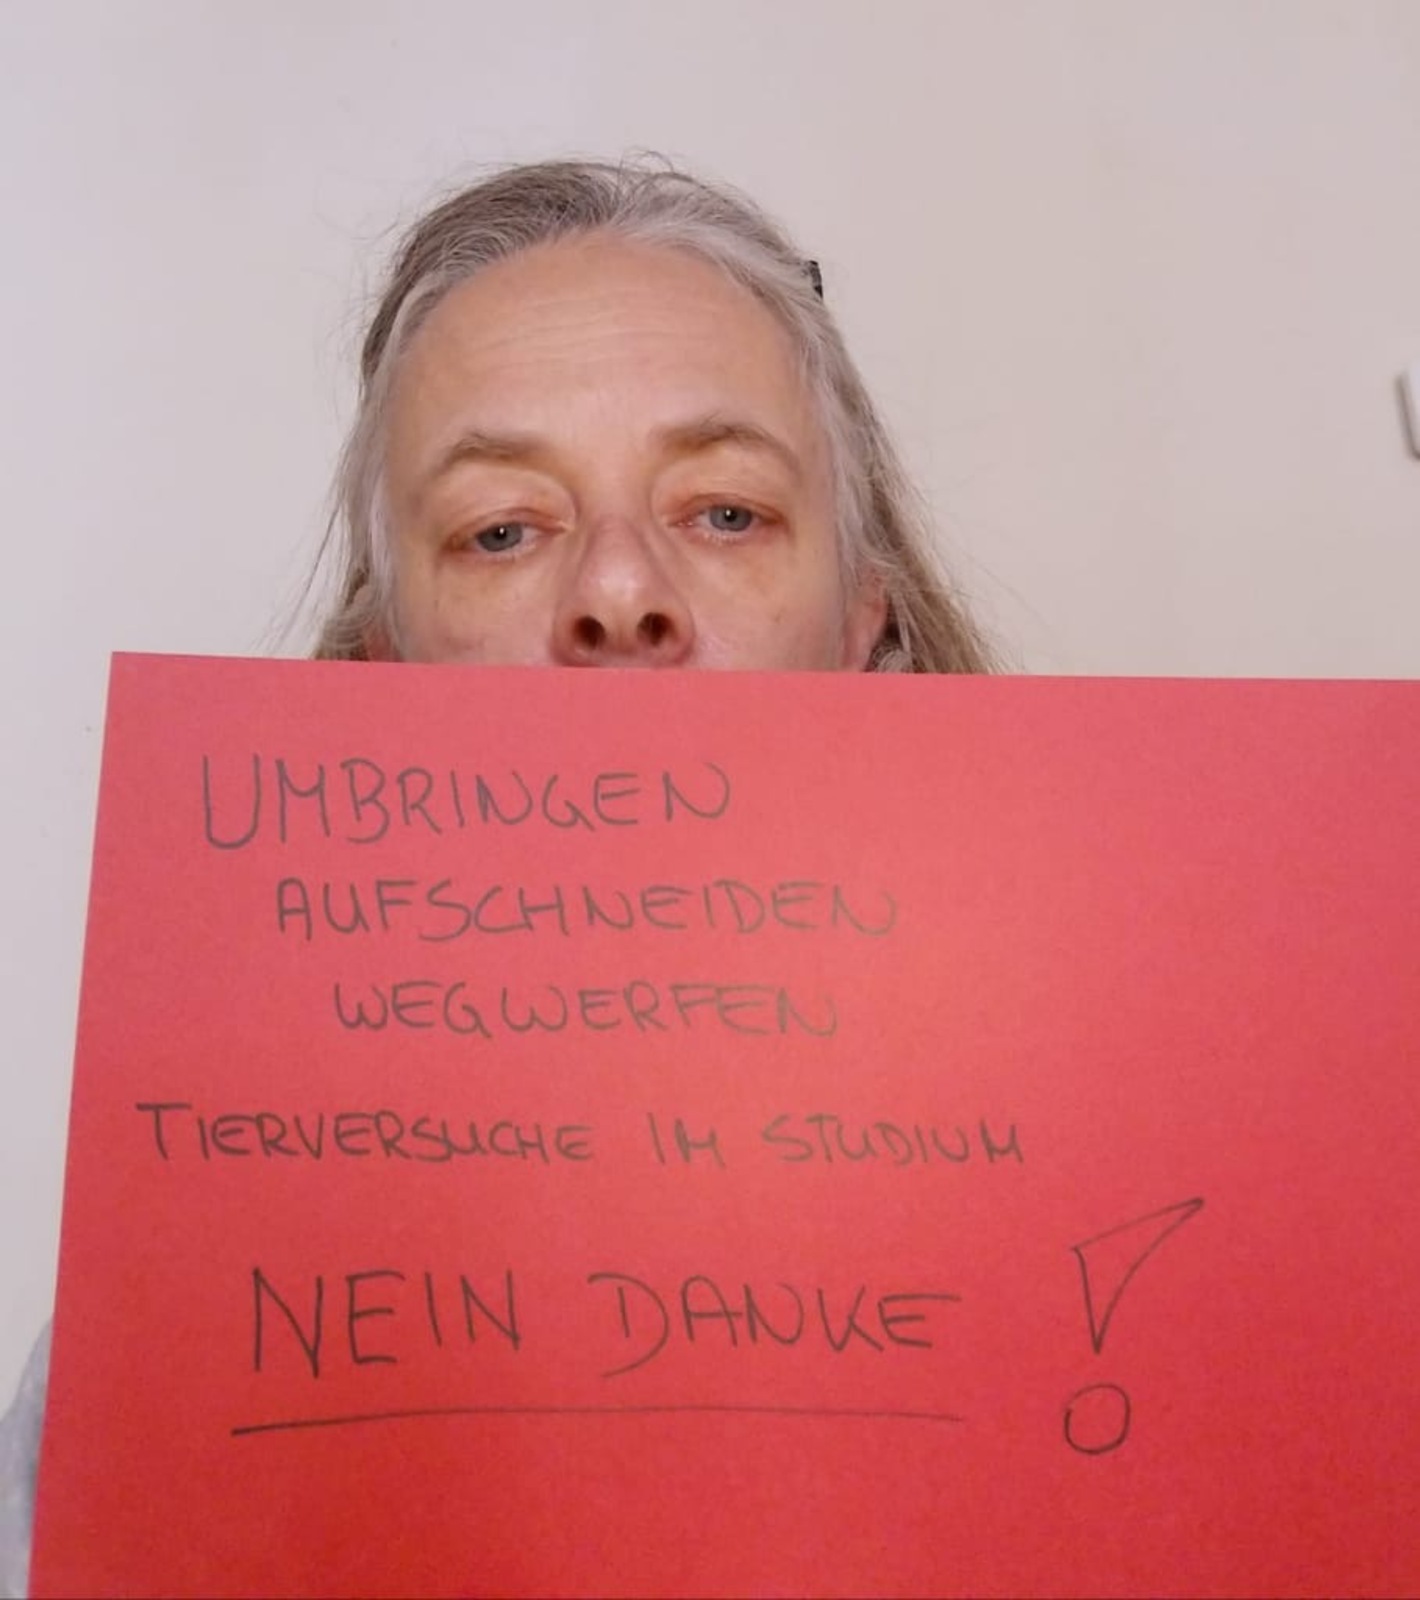 UMBRINGEN
AUFSCHNEIDEN
WEGWERFEN
TIERVERSUCHE IM STUDIUM
NEIN DANKE !